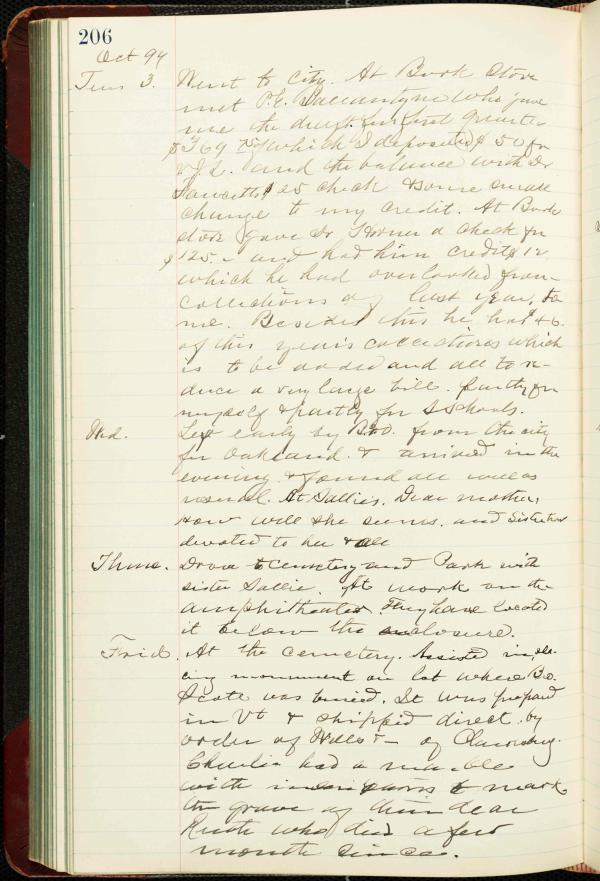 206
Oct 94
Tues 3. Went to City. At Book Store
met P.E. Ballantyne who gave
me the draft for first quarter
$369 75 of which I deposited $50 for
and the balance with Dr
Fawcetts $25 check & some small
change to my credit. At Book
store gave Dr. Horner a check for
$125.– and had him credit $12
which he had overlooked from
collections of last year, to
me. Besides this he has $46.
of this years collections which
is to be added and all to re-
duce a very large bill. partly for
myself & partly for S Schools.
Wed. Left early by B&O. from the city
for Oakland. & arrived in the
evening. & found all well as
usual. At Sallie's. Dear mother,
how well she seems. and Sister
devoted to her & all
Thurs. Drove to Cemetery and Park with
sister Sallie. At work on the
amphitheater. They have located
it below the enclosure.
Frid. At the cemetery. Assisted in
monument on lot where Bro.
Scott was buried. It was prepared
in Vt & shipped direct. by
order of of
Charlie had a marble
with to mark
the grave of their dear
Ruth who died a few
months since.